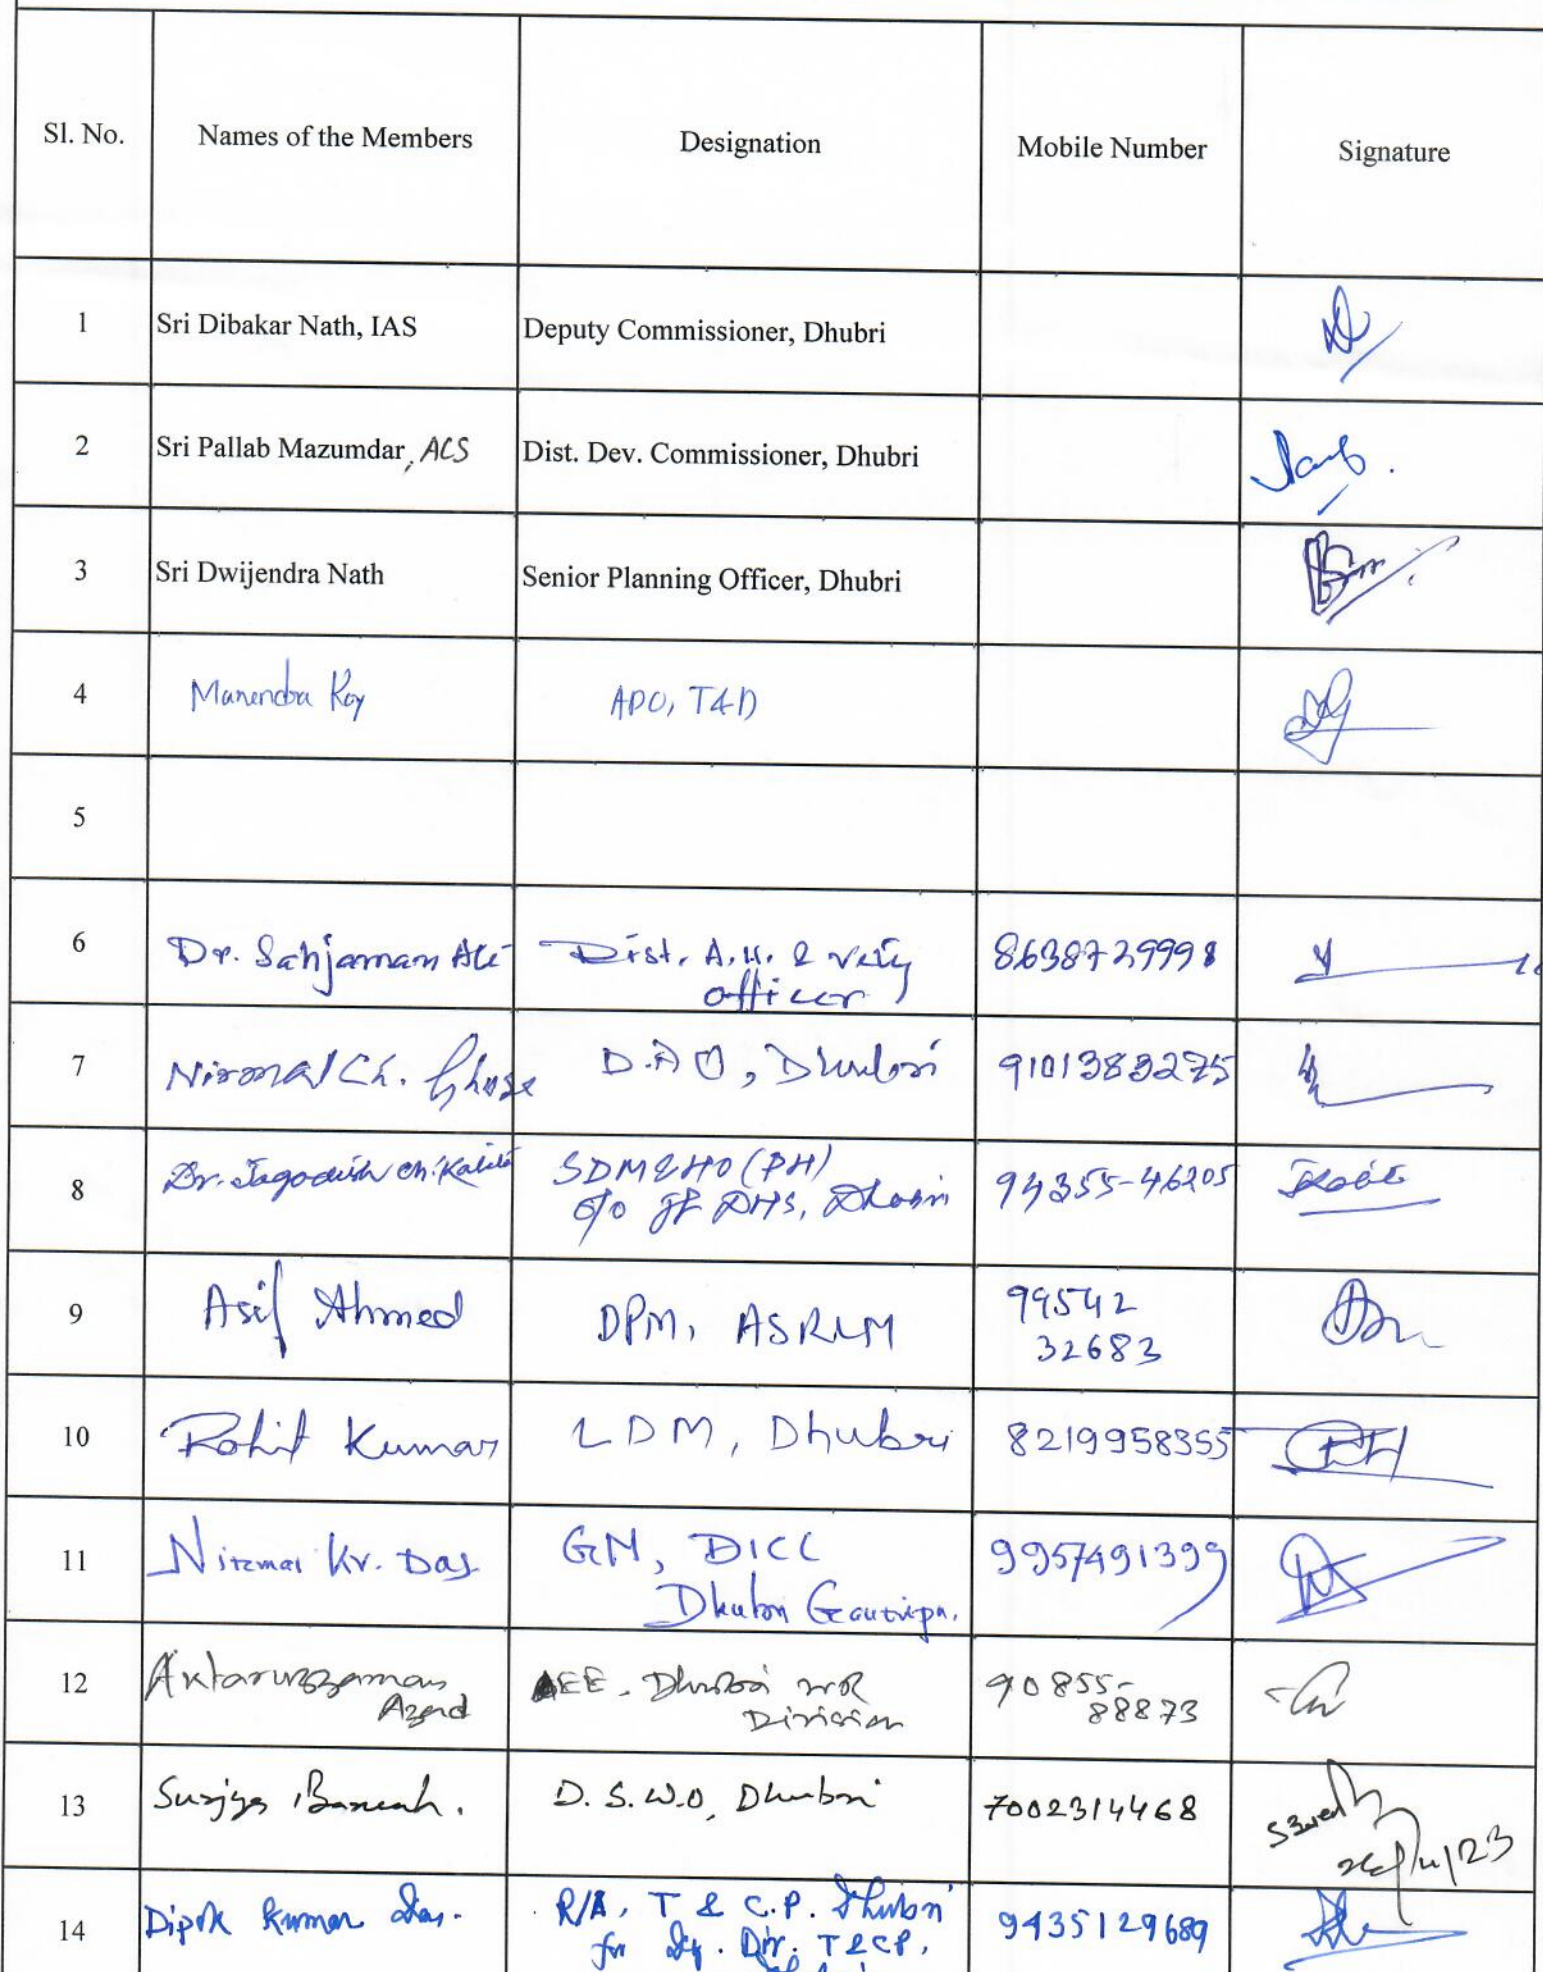 Sl. No. Names of the Members Designation Mobile Number Signature
1 Sri Dibakar Nath, IAS Deputy Commissioner, Dhubri
2 Sri Pallab Mazumdar, ACS Dist. Dev. Commissioner, Dhubri
3 Sri Dwijendra Nath Senior Planning Officer, Dhubri
4 Manendra Roy APO, T&D
5
6 Dr. Sahjaman Ali Dist. A.H. & Vety 8638729998
officer
7 Nirmal Ch. Ghose D.A.O, Dhubri 9101383275
8 Dr. Jagadish Ch. Kalita SDM&HO (PH) 94355-46205
O/o Jt DHS, Dhubri
9 Asif Ahmed DPM, ASRLM 99542
32683
10 Rohit Kumar LDM, Dhubri 8219958355
11 Nirmal Kr. Das GM, DICC 9957491399
Dhubri
12 Aktaruzzaman EE. Dhubri WR 90855-
Azad Division 88873
13 Surjya Baruah. D.S.W.O, Dhubri 7002314468
14 Dipak Kumar Das. R/A, T & C.P. Dhubri 9435129689
for Dy. Dir. T&CP,